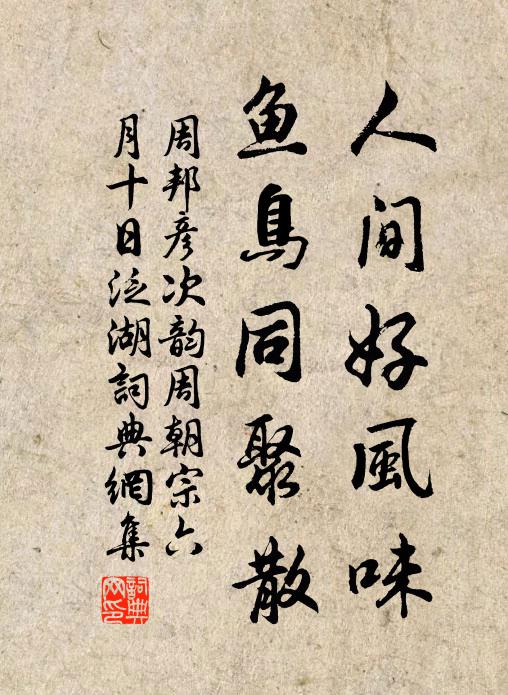 人间好風味
鱼鳥同聚散
周邦彦次韵周朝宗六
月十日泛湖詞典網集
詞典网印